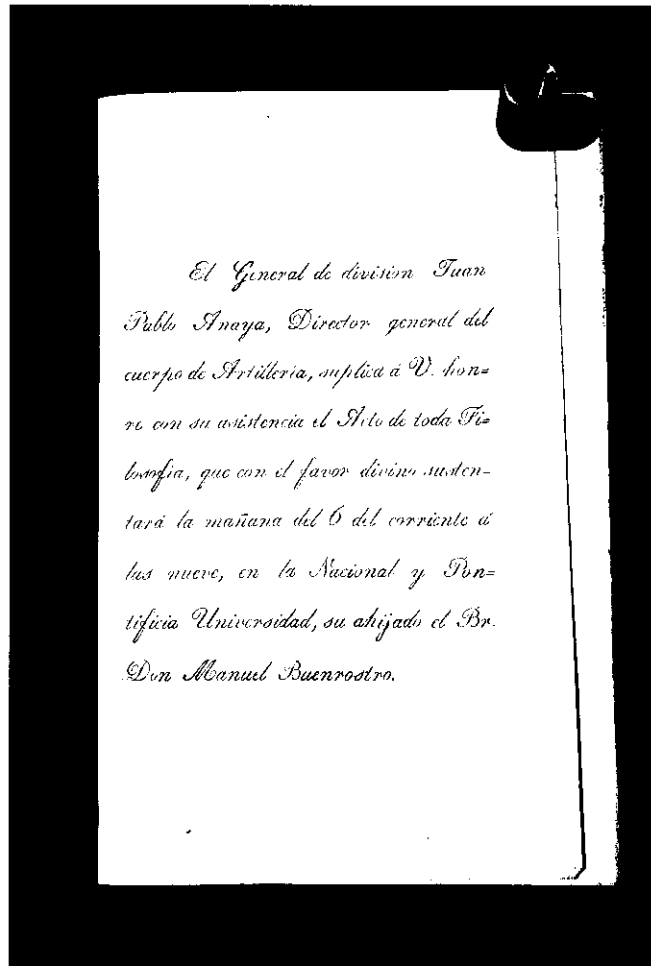 El General de division Juan
Pablo Anaya, Director general del
cuerpo de Artilleria, suplica á V. hon=
re con su asistencia el Acto de toda Fi=
losofia, que con el favor divino susten-
tará la mañana del 6 del corriente á
las nueve, en la Nacional y Pon=
tificia Universidad, su ahijado el Br.
Don Manuel Buenrostro.